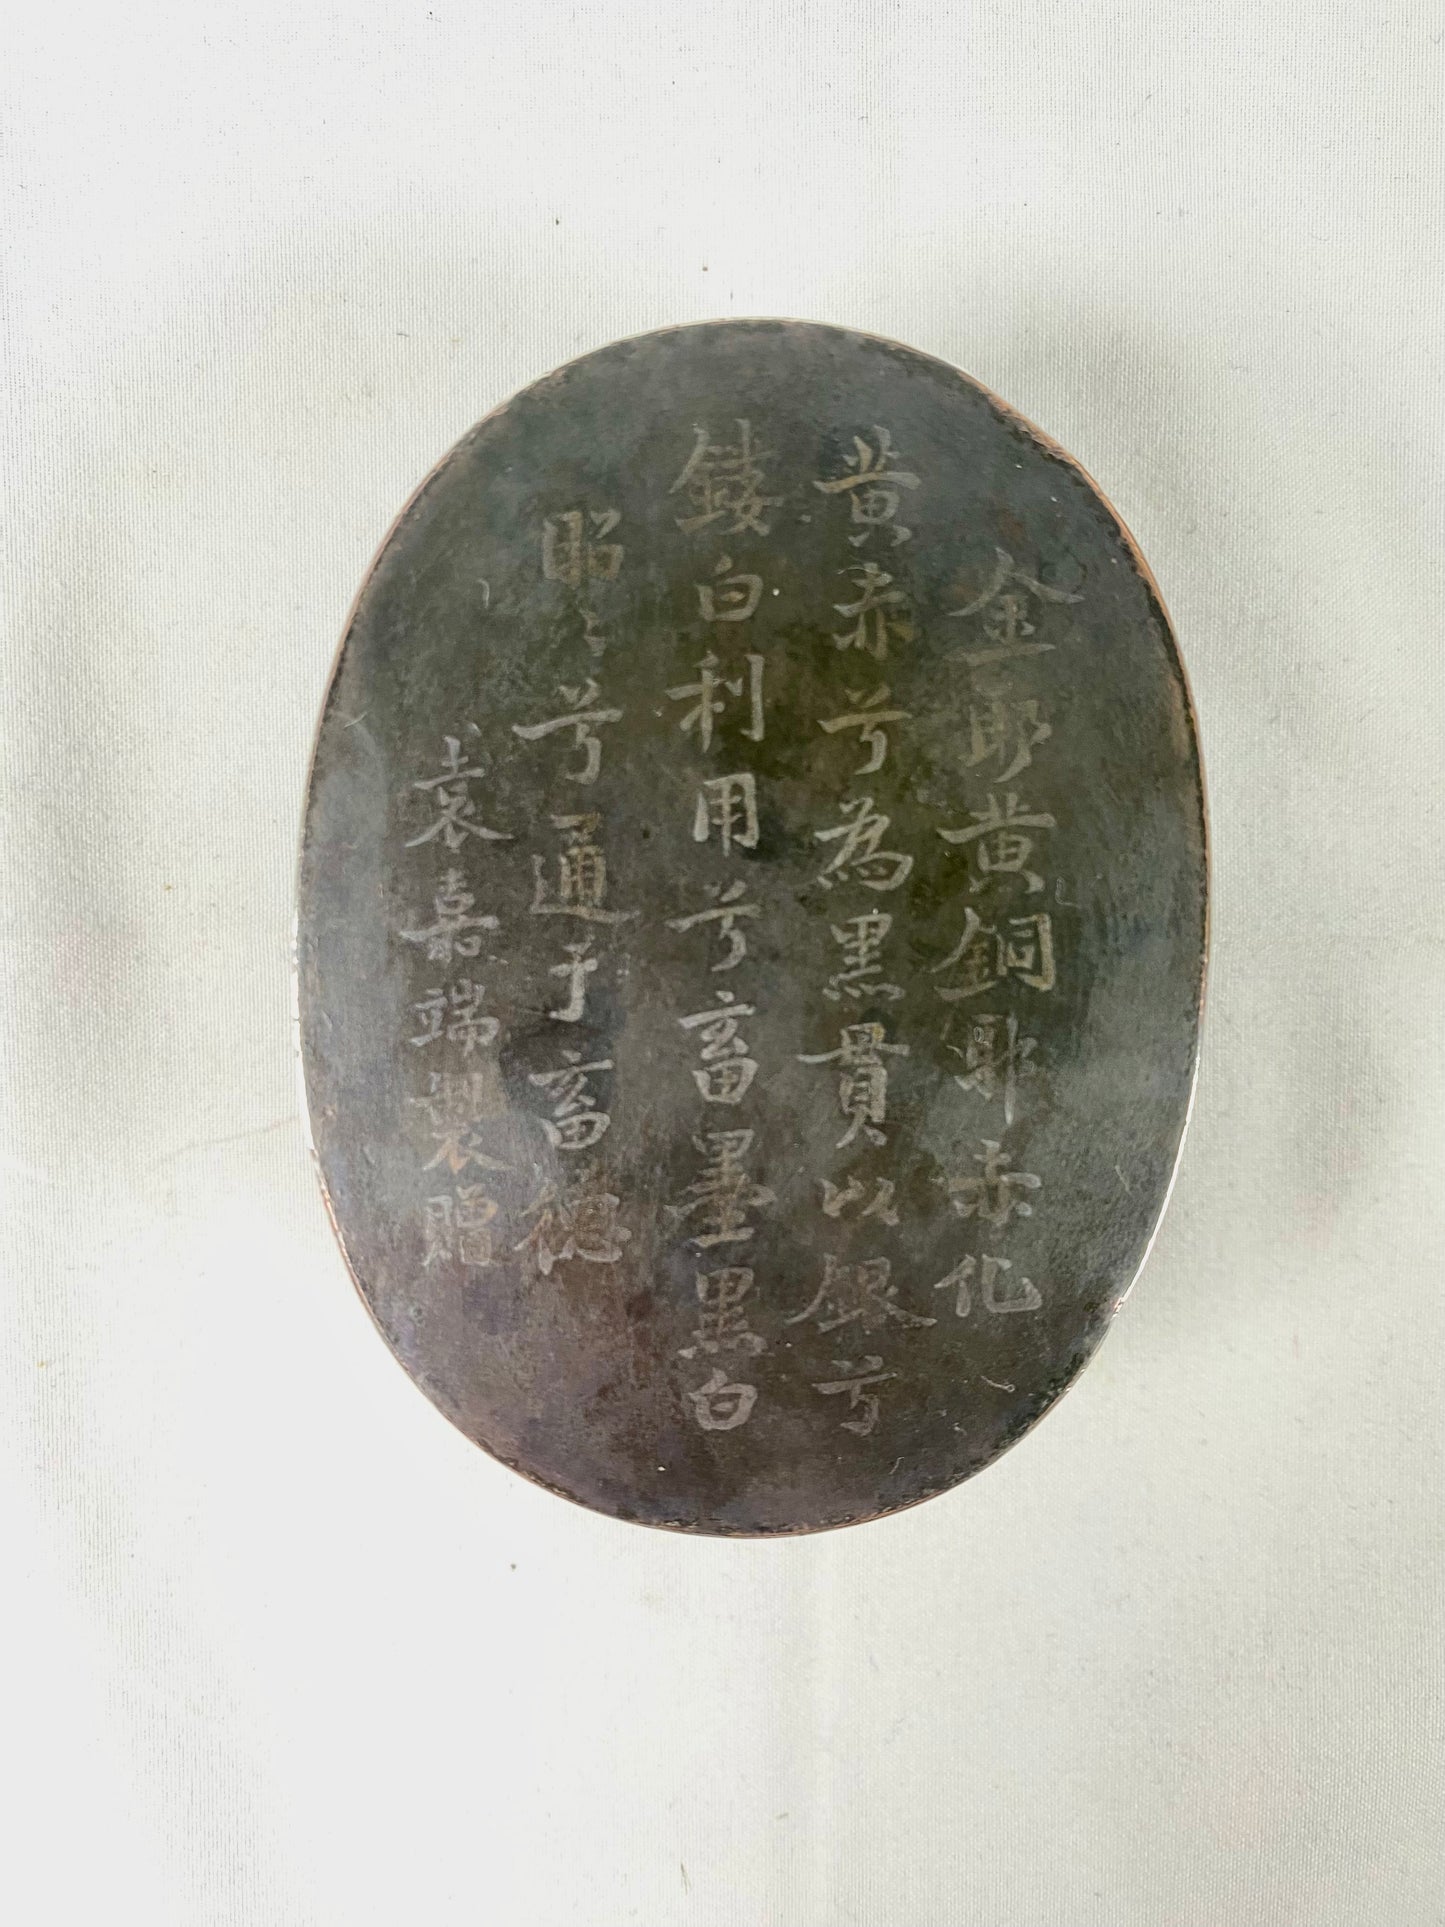 金耶黃銅耶赤化
黃赤兮為黑貫以銀兮
鏤白利用兮畜墨黑白
昭〻兮通于畜德
袁嘉端製贈